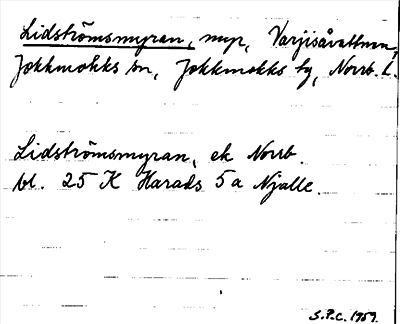 Lidströmsmyran, myr, Varjisåvattnen,
Jokkmokks sn, Jokkmokks by, Norrb. l.
Lidströmsmyran, ek Norrb.
bl. 25 K Harads 5a Njalle.
S.P.C. 1959.